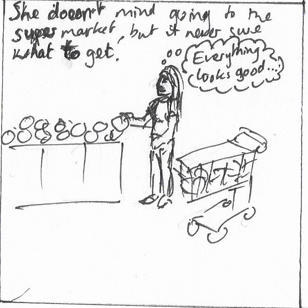 She doesn't mind going to the
supermarket, but is never sure
what to get.
Everything
looks good...